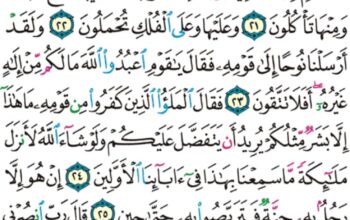 وَمِنْهَا تَأْكُلُونَ ٢١ وَعَلَيْهَا وَعَلَى ٱلْفُلْكِ تُحْمَلُونَ ٢٢ وَلَقَدْ
أَرْسَلْنَا نُوحًا إِلَىٰ قَوْمِهِۦ فَقَالَ يَٰقَوْمِ ٱعْبُدُوا۟ ٱللَّهَ مَا لَكُم مِّنْ إِلَٰهٍ
غَيْرُهُۥٓ أَفَلَا تَتَّقُونَ ٢٣ فَقَالَ ٱلْمَلَؤُا۟ ٱلَّذِينَ كَفَرُوا۟ مِن قَوْمِهِۦ مَا هَٰذَآ
إِلَّا بَشَرٌ مِّثْلُكُمْ يُرِيدُ أَن يَتَفَضَّلَ عَلَيْكُمْ وَلَوْ شَآءَ ٱللَّهُ لَأَنزَلَ
مَلَٰٓئِكَةً مَّا سَمِعْنَا بِهَٰذَا فِىٓ ءَابَآئِنَا ٱلْأَوَّلِينَ ٢٤ إِنْ هُوَ إِلَّا
رَجُلٌۢ بِهِۦ جِنَّةٌ فَتَرَبَّصُوا۟ بِهِۦ حَتَّىٰ حِينٍ ٢٥ قَالَ رَبِّ ٱنصُرْنِى